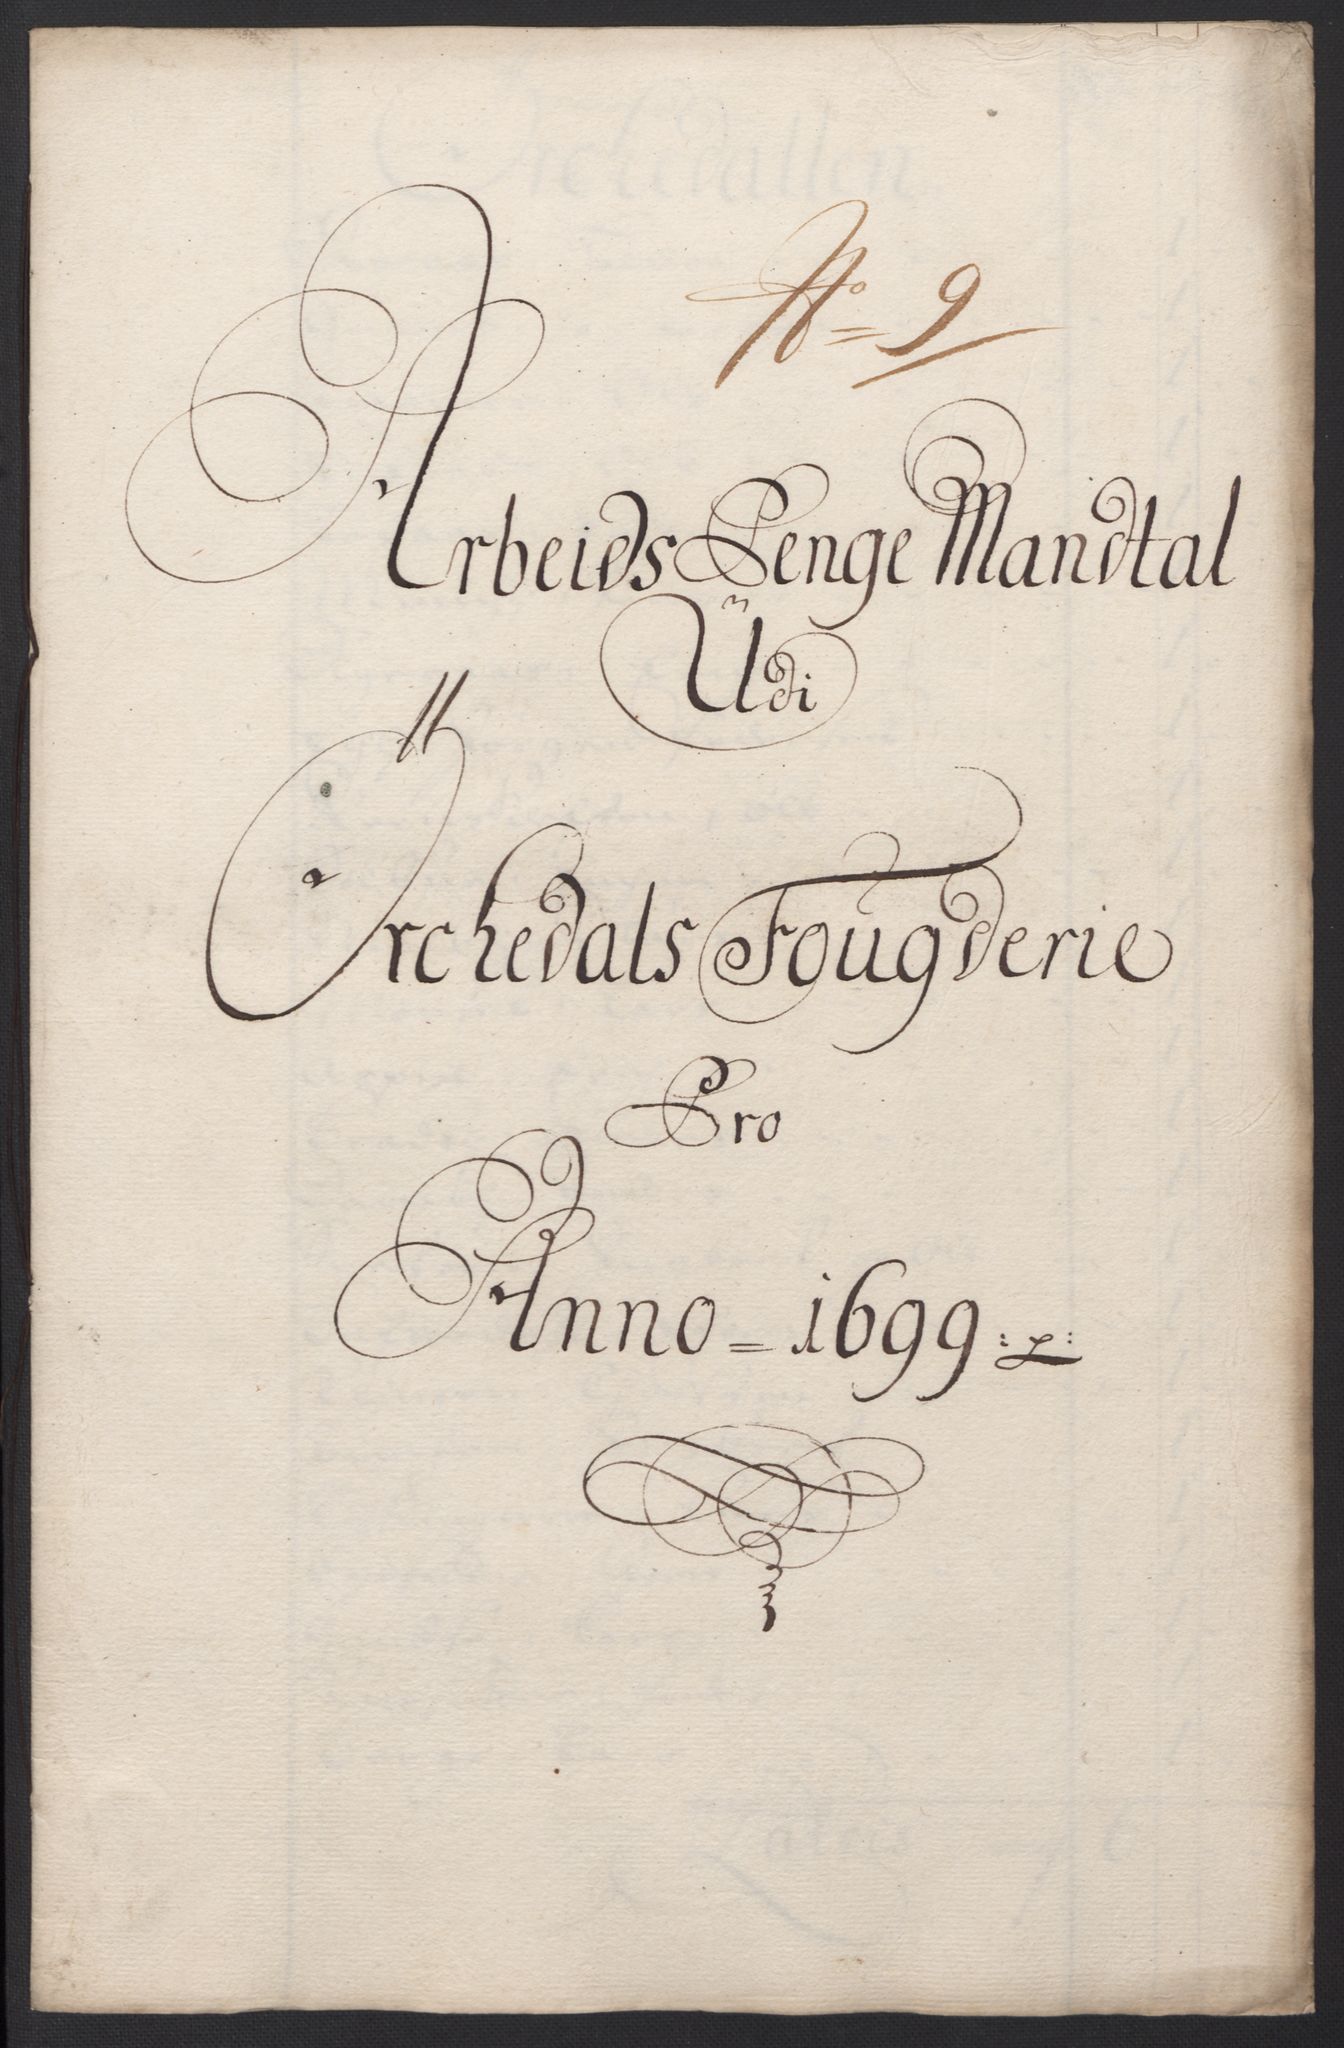 No = 9
Arbeids Penge Mandtal
Udi
Örchedals Fougderie
Pro
Anno = 1699